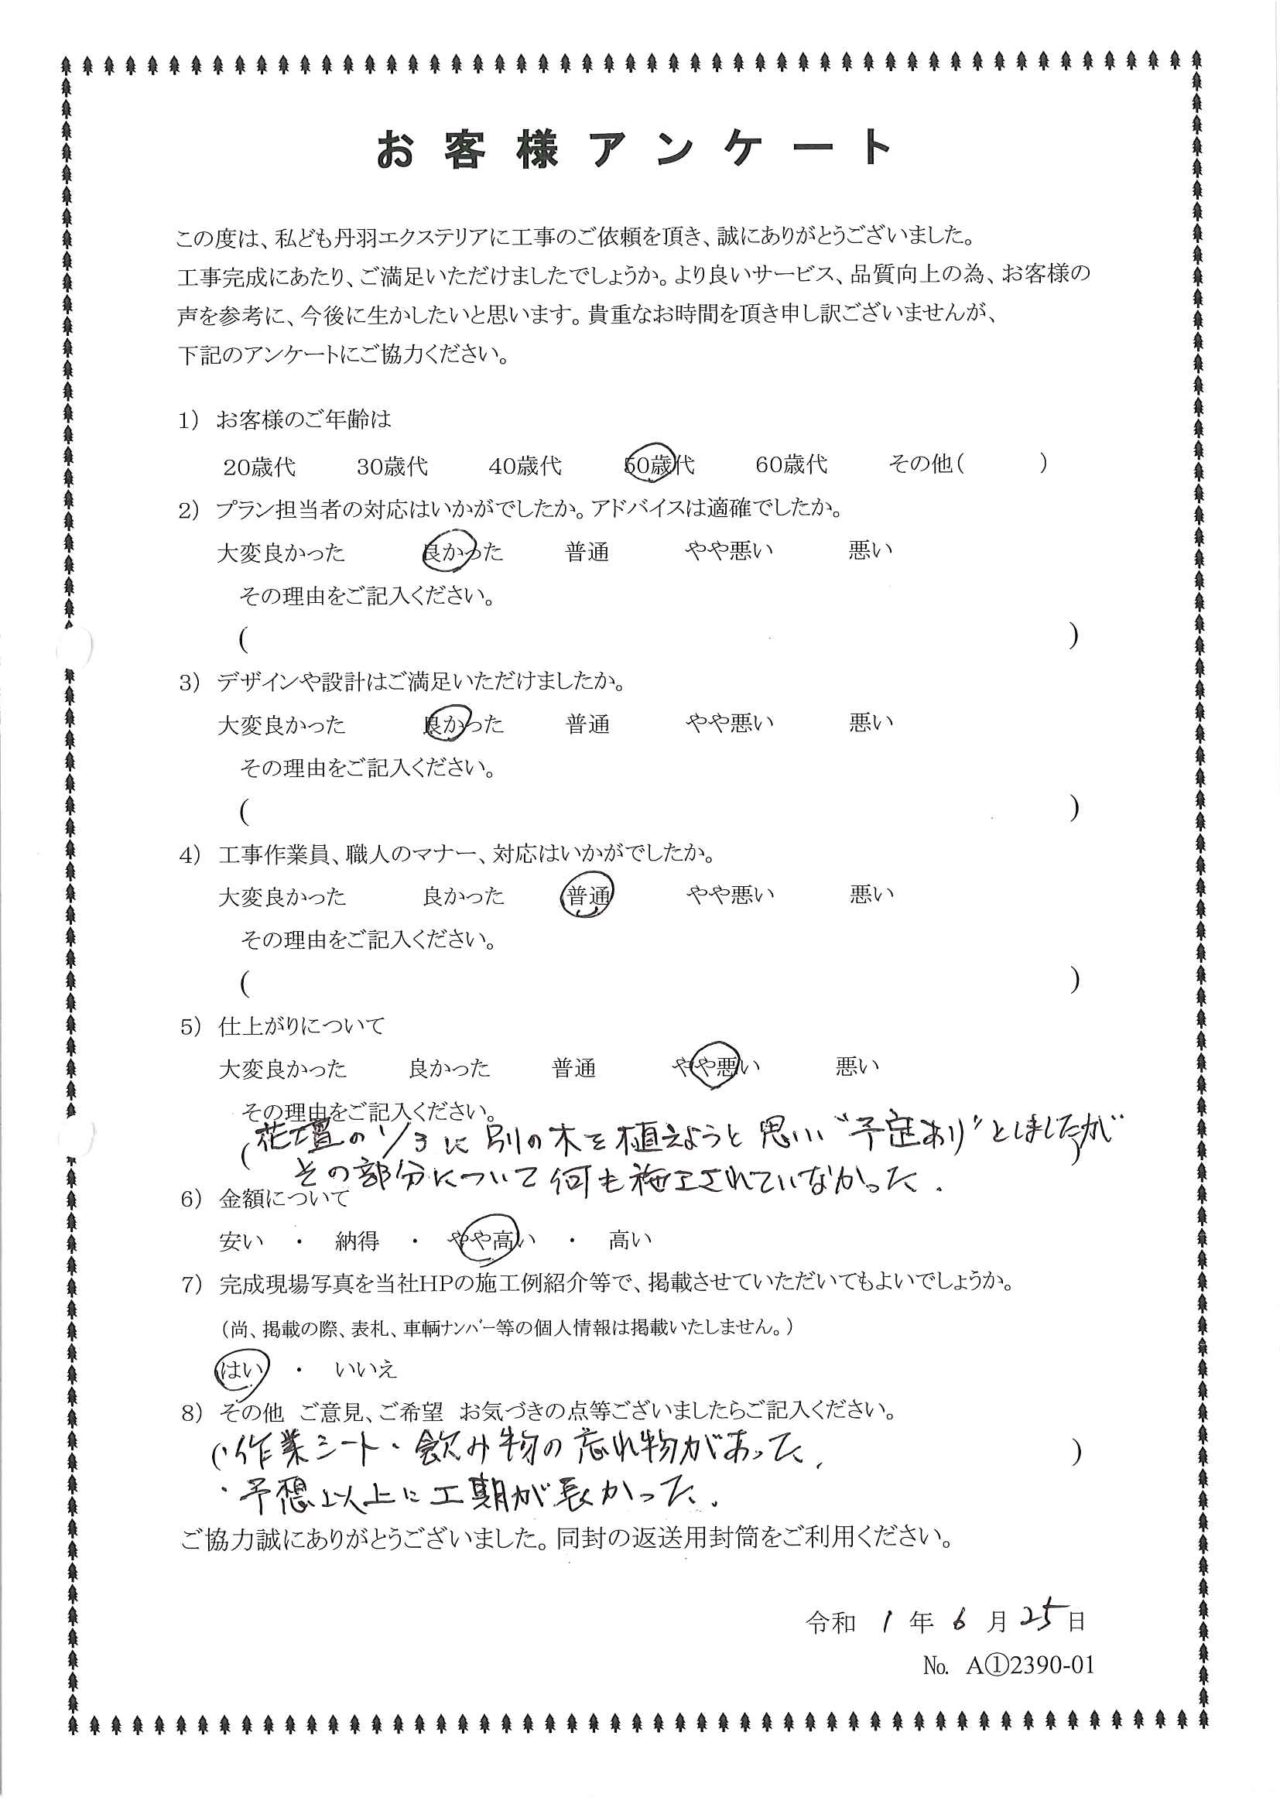 お客様アンケート
この度は、私ども丹羽エクステリアに工事のご依頼を頂き、誠にありがとうございました。
工事完成にあたり、ご満足いただけましたでしょうか。より良いサービス、品質向上の為、お客様の
声を参考に、今後に生かしたいと思います。貴重なお時間を頂き申し訳ございませんが、
下記のアンケートにご協力ください。
1) お客様のご年齢は
20歳代 30歳代 40歳代 50歳代 60歳代 その他( )
2) プラン担当者の対応はいかがでしたか。アドバイスは適確でしたか。
大変良かった 良かった 普通 やや悪い 悪い
その理由をご記入ください。
( )
3) デザインや設計はご満足いただけましたか。
大変良かった 良かった 普通 やや悪い 悪い
その理由をご記入ください。
( )
4) 工事作業員、職人のマナー、対応はいかがでしたか。
大変良かった 良かった 普通 やや悪い 悪い
その理由をご記入ください。
( )
5) 仕上がりについて
大変良かった 良かった 普通 やや悪い 悪い
その理由をご記入ください。
(花壇の1/3に別の木を植えようと思い“予定あり”としましたが)
その部分について何も施工されていなかった.
6) 金額について
安い ・ 納得 ・ やや高い ・ 高い
7) 完成現場写真を当社HPの施工例紹介等で、掲載させていただいてもよいでしょうか。
(尚、掲載の際、表札、車輌ナンバー等の個人情報は掲載いたしません。)
はい ・ いいえ
8) その他 ご意見、ご希望 お気づきの点等ございましたらご記入ください。
(・作業シート・飲み物の忘れ物があった. )
・予想以上に工期が長かった.
ご協力誠にありがとうございました。同封の返送用封筒をご利用ください。
令和 1 年 6 月 25 日
№ A①2390-01